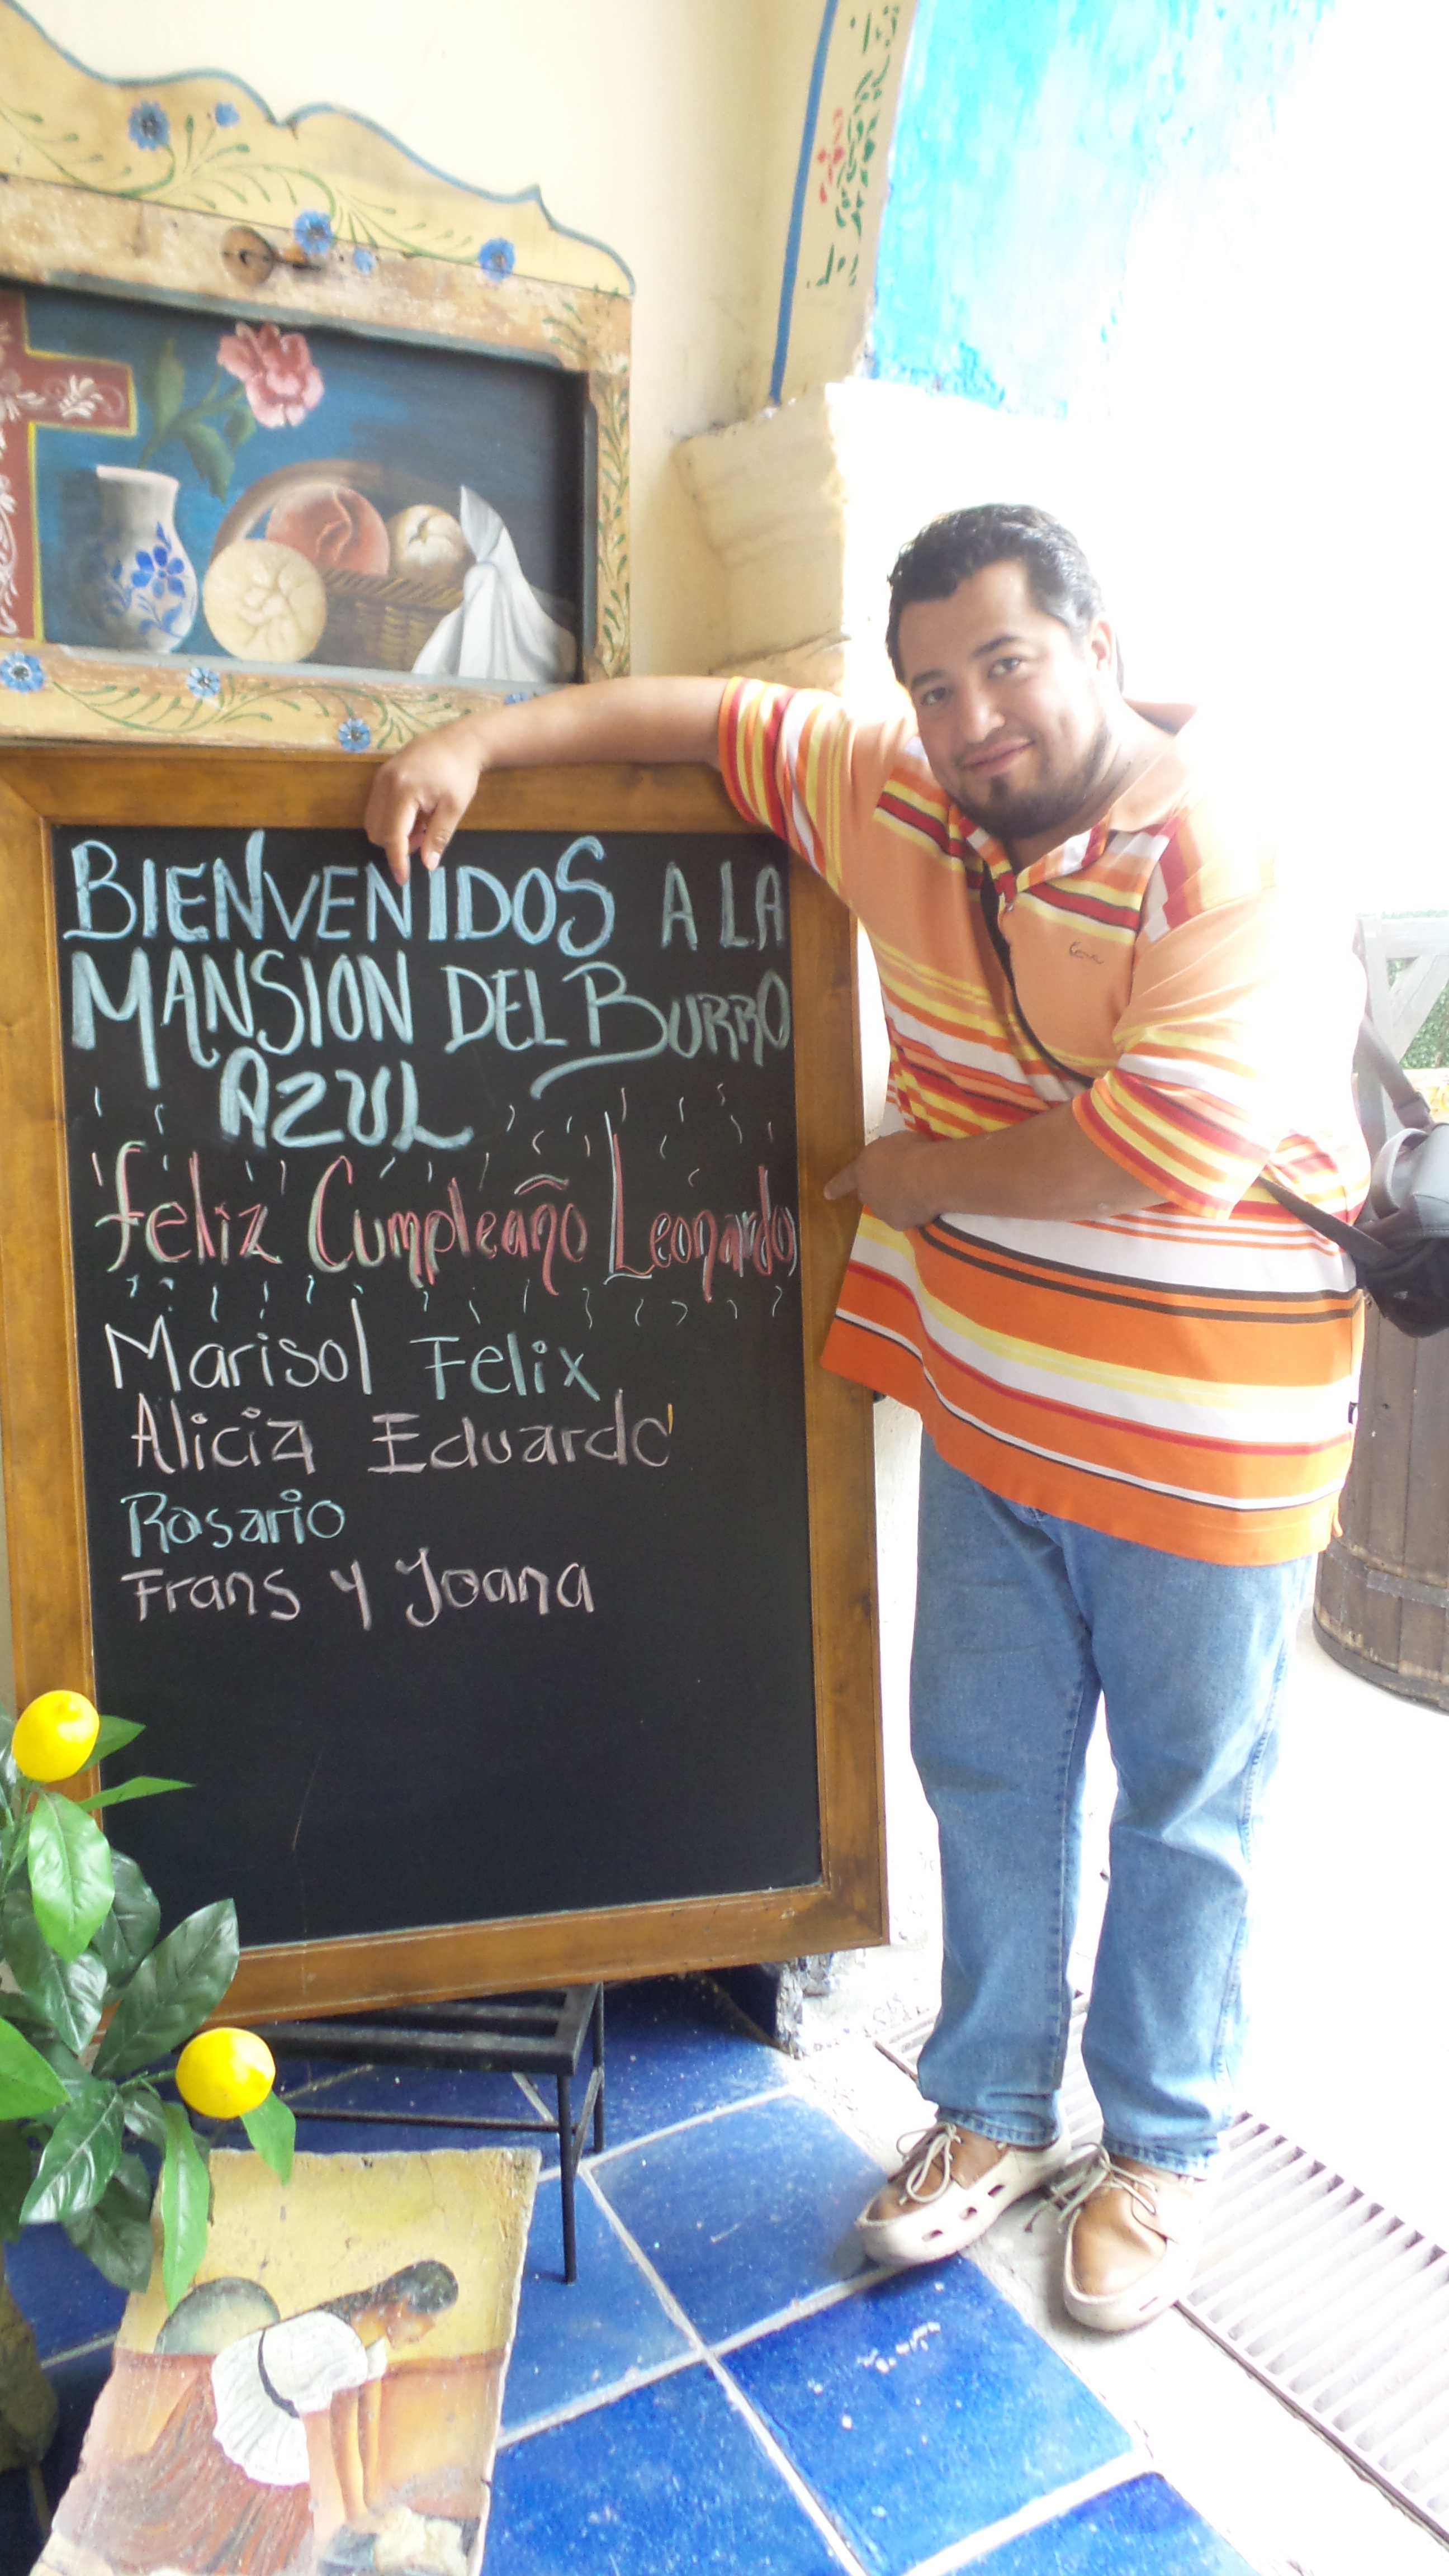 BIENVENIDOS A LA
MANSION DEL BURRO
AZUL
Feliz Cumpleaño Leonardo
Marisol Felix
Alicia Eduardo
Rosario
Frans y Joana